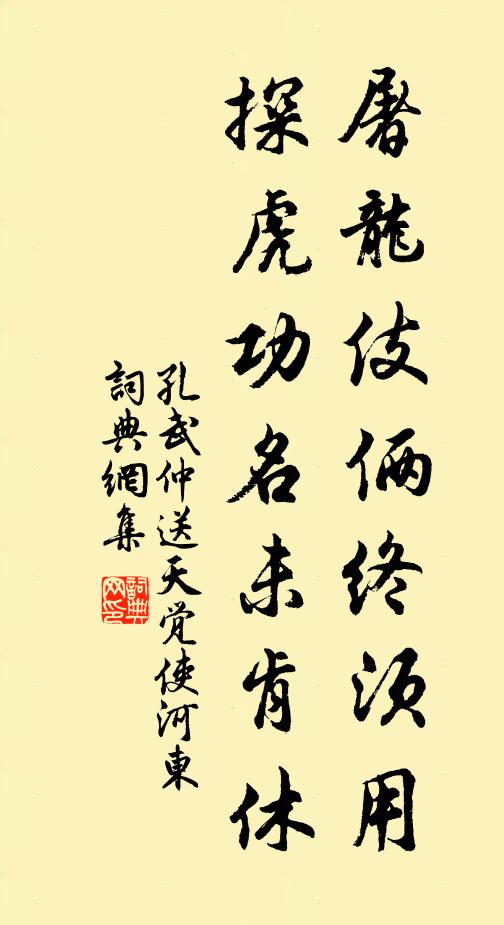 屠龍伎倆終須用
探虎功名未肯休
孔武仲送天覺使河東
詞典網集